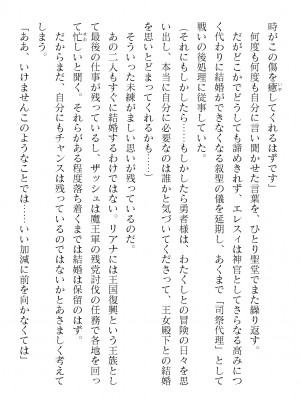 時がこの傷を癒してくれるはずです」
何度も何度も自分に言い聞かせた言葉を、ひとり聖堂でまた繰り返す。
だがどこかでどうしても諦めきれず、エレスは神官としてさらなる高みにつ
く代わりに結婚ができなくなる叙聖の儀を延期し、あくまで「司祭代理」として
戦いの後処理に従事していた。
「それにもしかしたら……もしかしたら勇者様は、わたくしとの冒険の日々を思
い出し、本当に自分に必要なのは誰かと気づいてくださって、王女殿下との結婚
を思いとどまってくれるかも……」
そういった未練がましい思いが残っているのだ。
あの二人もすぐに結婚するわけではない。リアナには王国復興という王族とし
て最後の仕事が残っているし、ザッシュは魔王軍の残党討伐の任務で各地を回っ
て忙しいと聞く。それらがある程度落ち着くまでは結婚は保留のはず。
だからまだ、自分にもチャンスは残っているのではないかとあさましく考えて
しまう。
「ああ、いけませんこのようなことでは……いい加減に前を向かなくては」